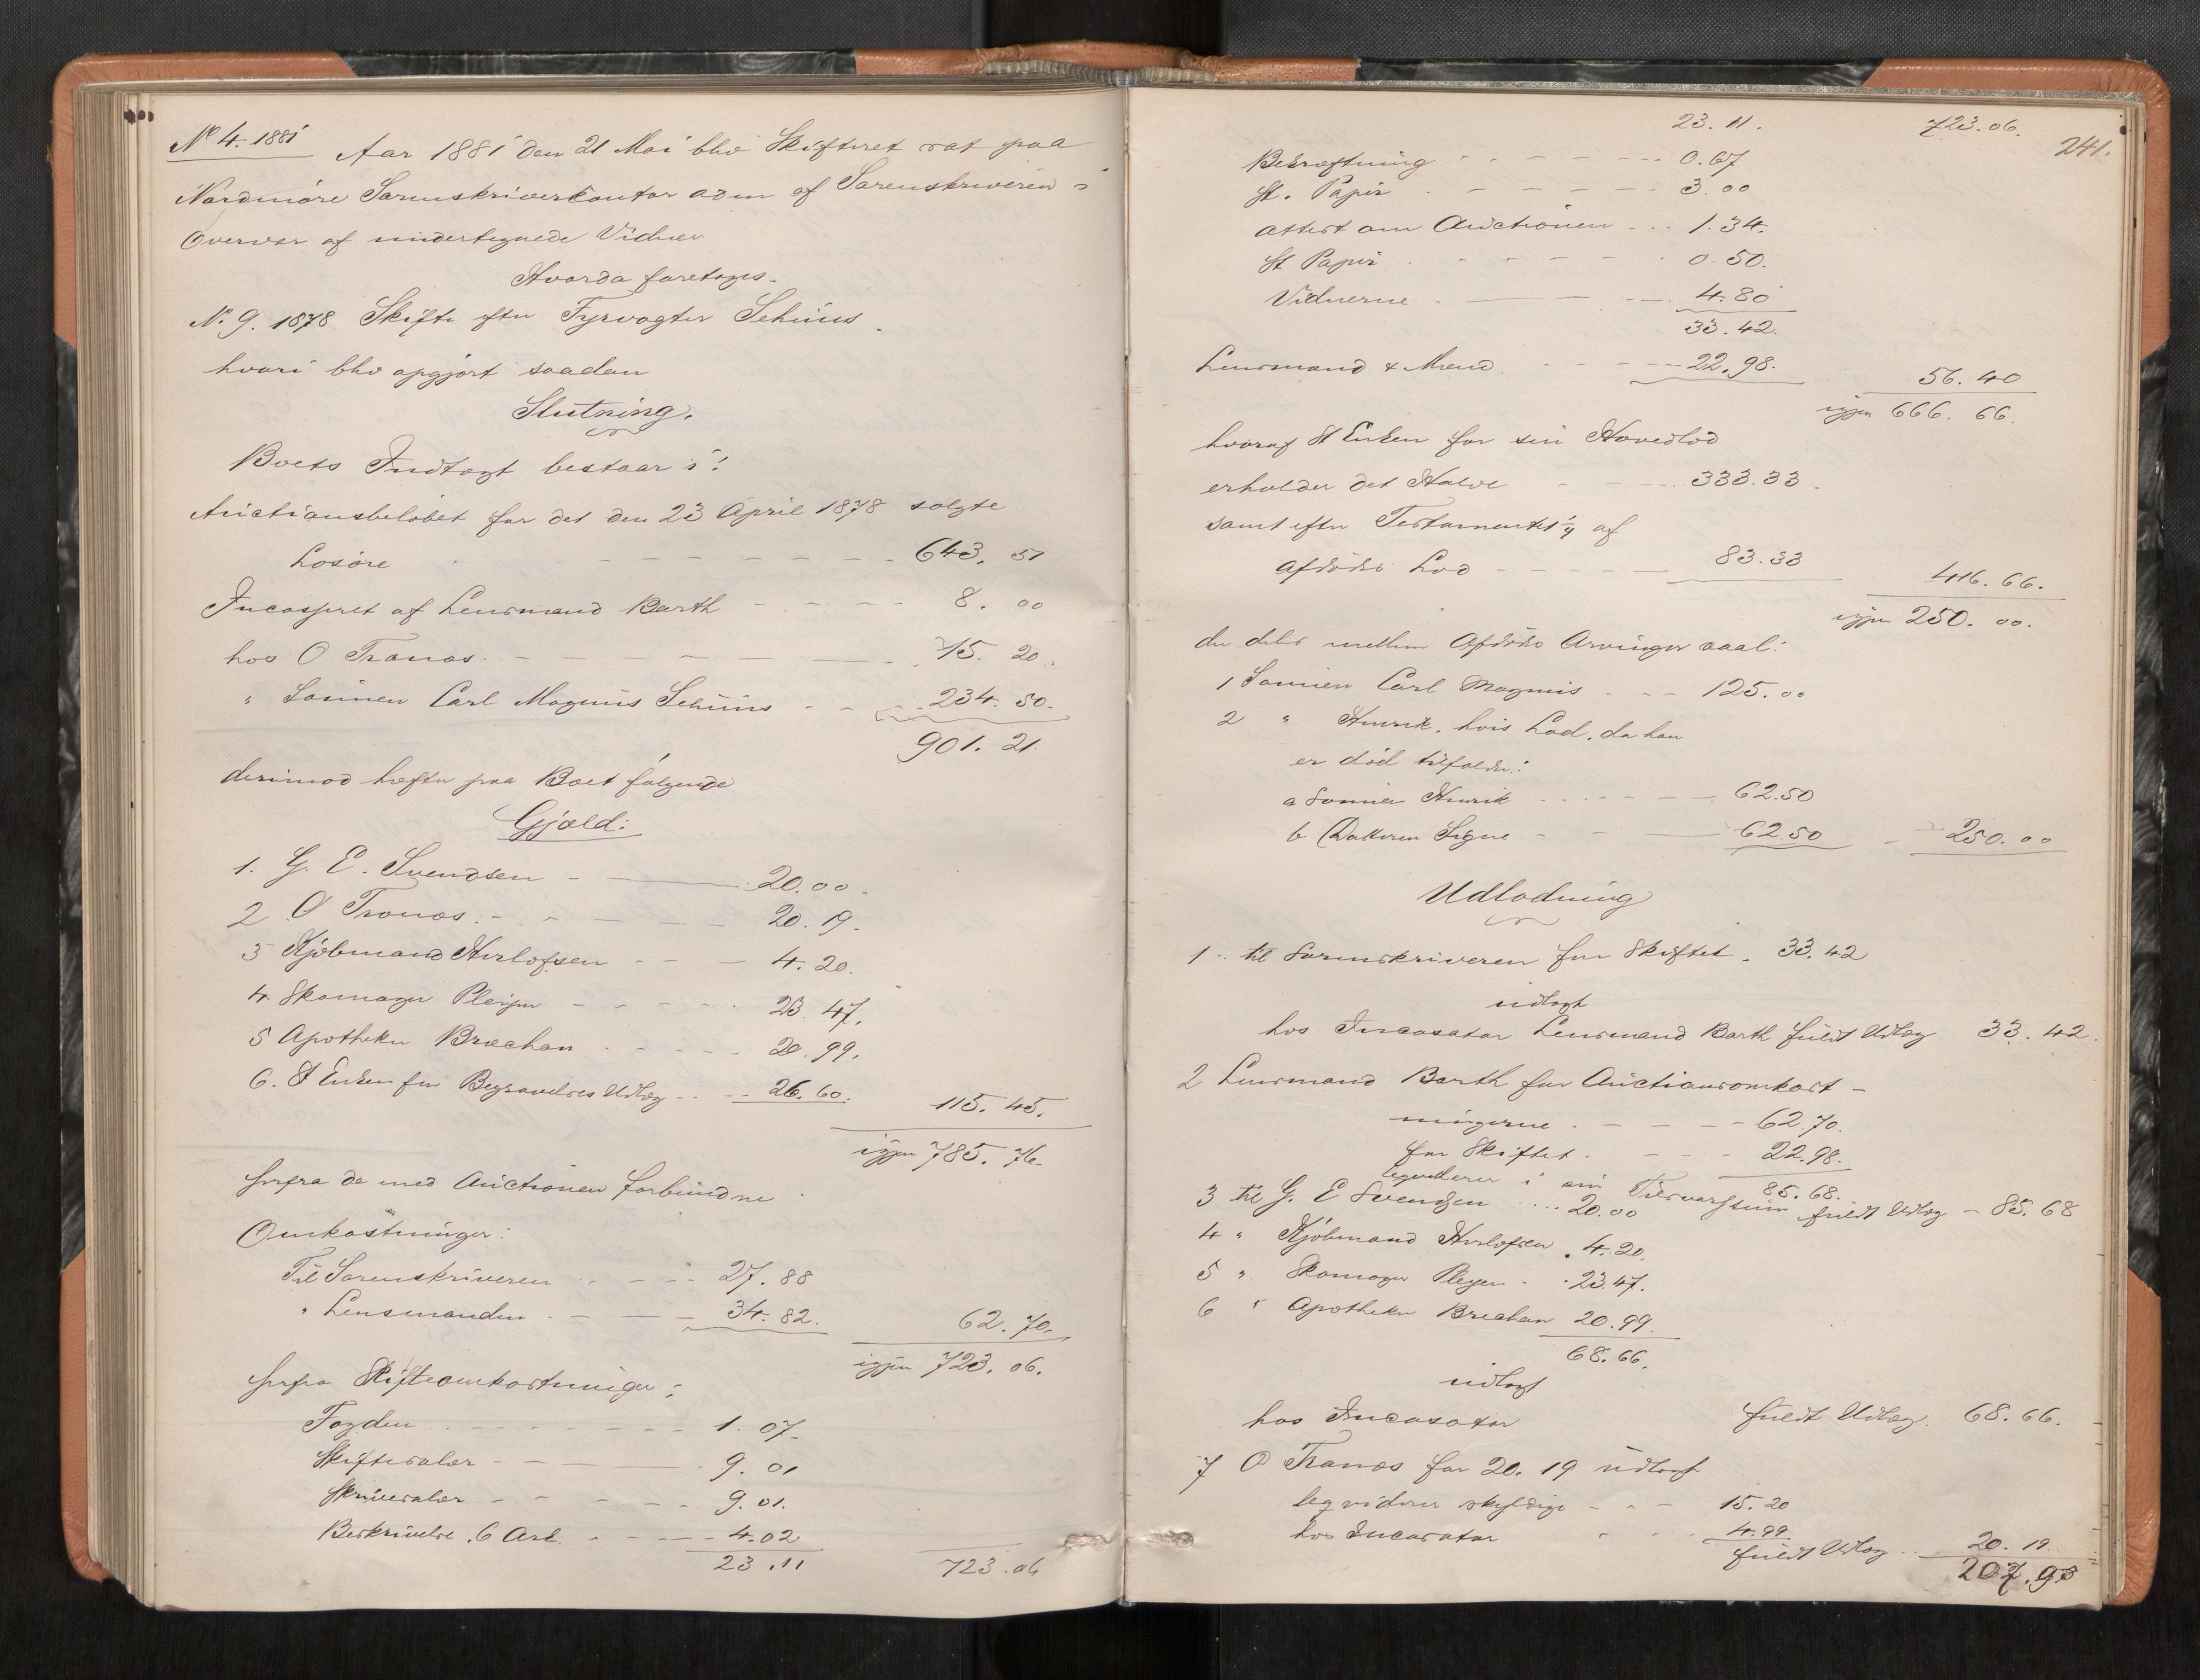 No 4. 1881
Aar 1881 den 21 Mai blev Skifteret sat paa
Nordmöre Sorenskriverkontor adm af Sorenskriveren i
Overvær af undertegnede Vidner
Hvorda foretoges.
No. 9. 1878 Skifte efter Fyrvogter Schiius.
hvori blev opgjort saadan
Slutning.
Boets Indtægt bestaar i:
Auctionsbelöbet for det den 23 April 1878 solgte
Lösöre - - - 643. 51
Incasseret af Lensmand Barth - - - 8. 00
hos O Tranas - - - 15. 20
" Sönnen Carl Magnus Schiiius - - 234. 50.
901. 21.
derimod hefter paa Boet følgende
Gjæld:
1. G. E. Svendsen - 20.00.
2 O Tranas. - - - 20. 19.
3 Kjöbmand Herlofsen - - - 4. 20.
4 Skomager Pleym - - - 23. 47.
5 Apotheker Bræchan - - - 20. 99.
6. St Enken for Begravelses Udlæg - - 26. 60. 115. 45.
igjen 785. 76.
herfra de med Auctionen forbundne
Omkostninger:
Til Sorenskriveren - - - 27. 88
" Lensmanden - - - 34. 82. 62. 70.
igjen 723. 06.
herfra Skifteomkostninger:
Fogden - - - 1. 07.
Skiftesalær - - - 9. 01
Skriversalær - - - 9. 01.
Beskrivelse 6 Ark - - - 4. 02
23. 11 723. 06
23. 11. 723. 06.
241.
Bekræftning - - - 0. 67
St. Papir - - - 3. 00
Attest om Auctionen - - 1. 34.
St Papir - - - 0. 50.
Vidnerne - - - 4. 80
33. 42.
Lensmand & Mænd - - - 22. 98. 56. 40
igjen 666. 66.
hvoraf St Enken for sin Hovedlod
erholder det Halve - - - 333. 33.
samt efter Testamentet ¼ af
Afdödes Lod - - - 83. 33 416. 66.
igjen 250. 00.
der deles mellem Afdödes Arvinger saal:
1 Sönnen Carl Magnus - - - 125. 00
2 " Henrik, hvis Lod, da han
er död tilfalder:
a Sönnen Henrik - - - 62.50
b Datteren Signe - - - 62.50 - 250. 00
Udlodning
1 til Sorenskriveren for Skiftet. 33. 42
udlagt
hos Incasator Lensmand Barth fuldt Udlæg 33. 42.
2 Lensmand Barth for Auctionsomkost-
ningerne - - - 62. 70.
for Skiftet - - - 22. 98.
85. 68.
legviderer i sin Tilsvarssum fuldt Udlæg - 85. 68
3 til G. E Svendsen ... 20.00
4 " Kjöbmand Herlofsen . 4. 20.
5 " Skomager Pleym . . 23. 47.
6 " Apotheker Brechan 20. 99.
68. 66.
udlagt
hos Incasator fuldt Udlæg. 68. 66.
7 O Tranas for 20. 19 udlagt
legviderer skyldige - - - 15. 20
hos Incasator - - - 4.99
fuldt Udlæg - 20. 19
207. 95